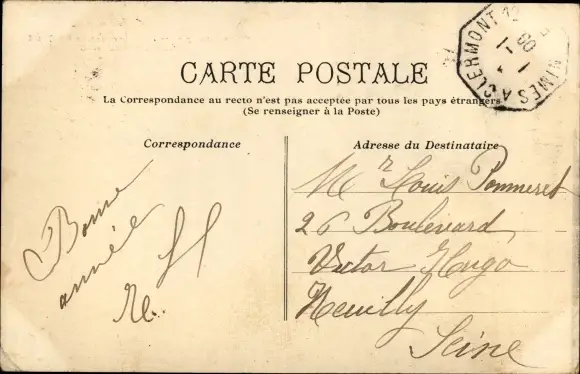 CARTE POSTALE
La Correspondance au recto n'est pas acceptée par tous les pays étrangers
(Se renseigner à la Poste)
Correspondance
Adresse du Destinataire
Bonne
année
Mr Louis Pommeret
26 Boulevard
Victor Hugo
Neuilly
Seine
NIMES A CLERMONT